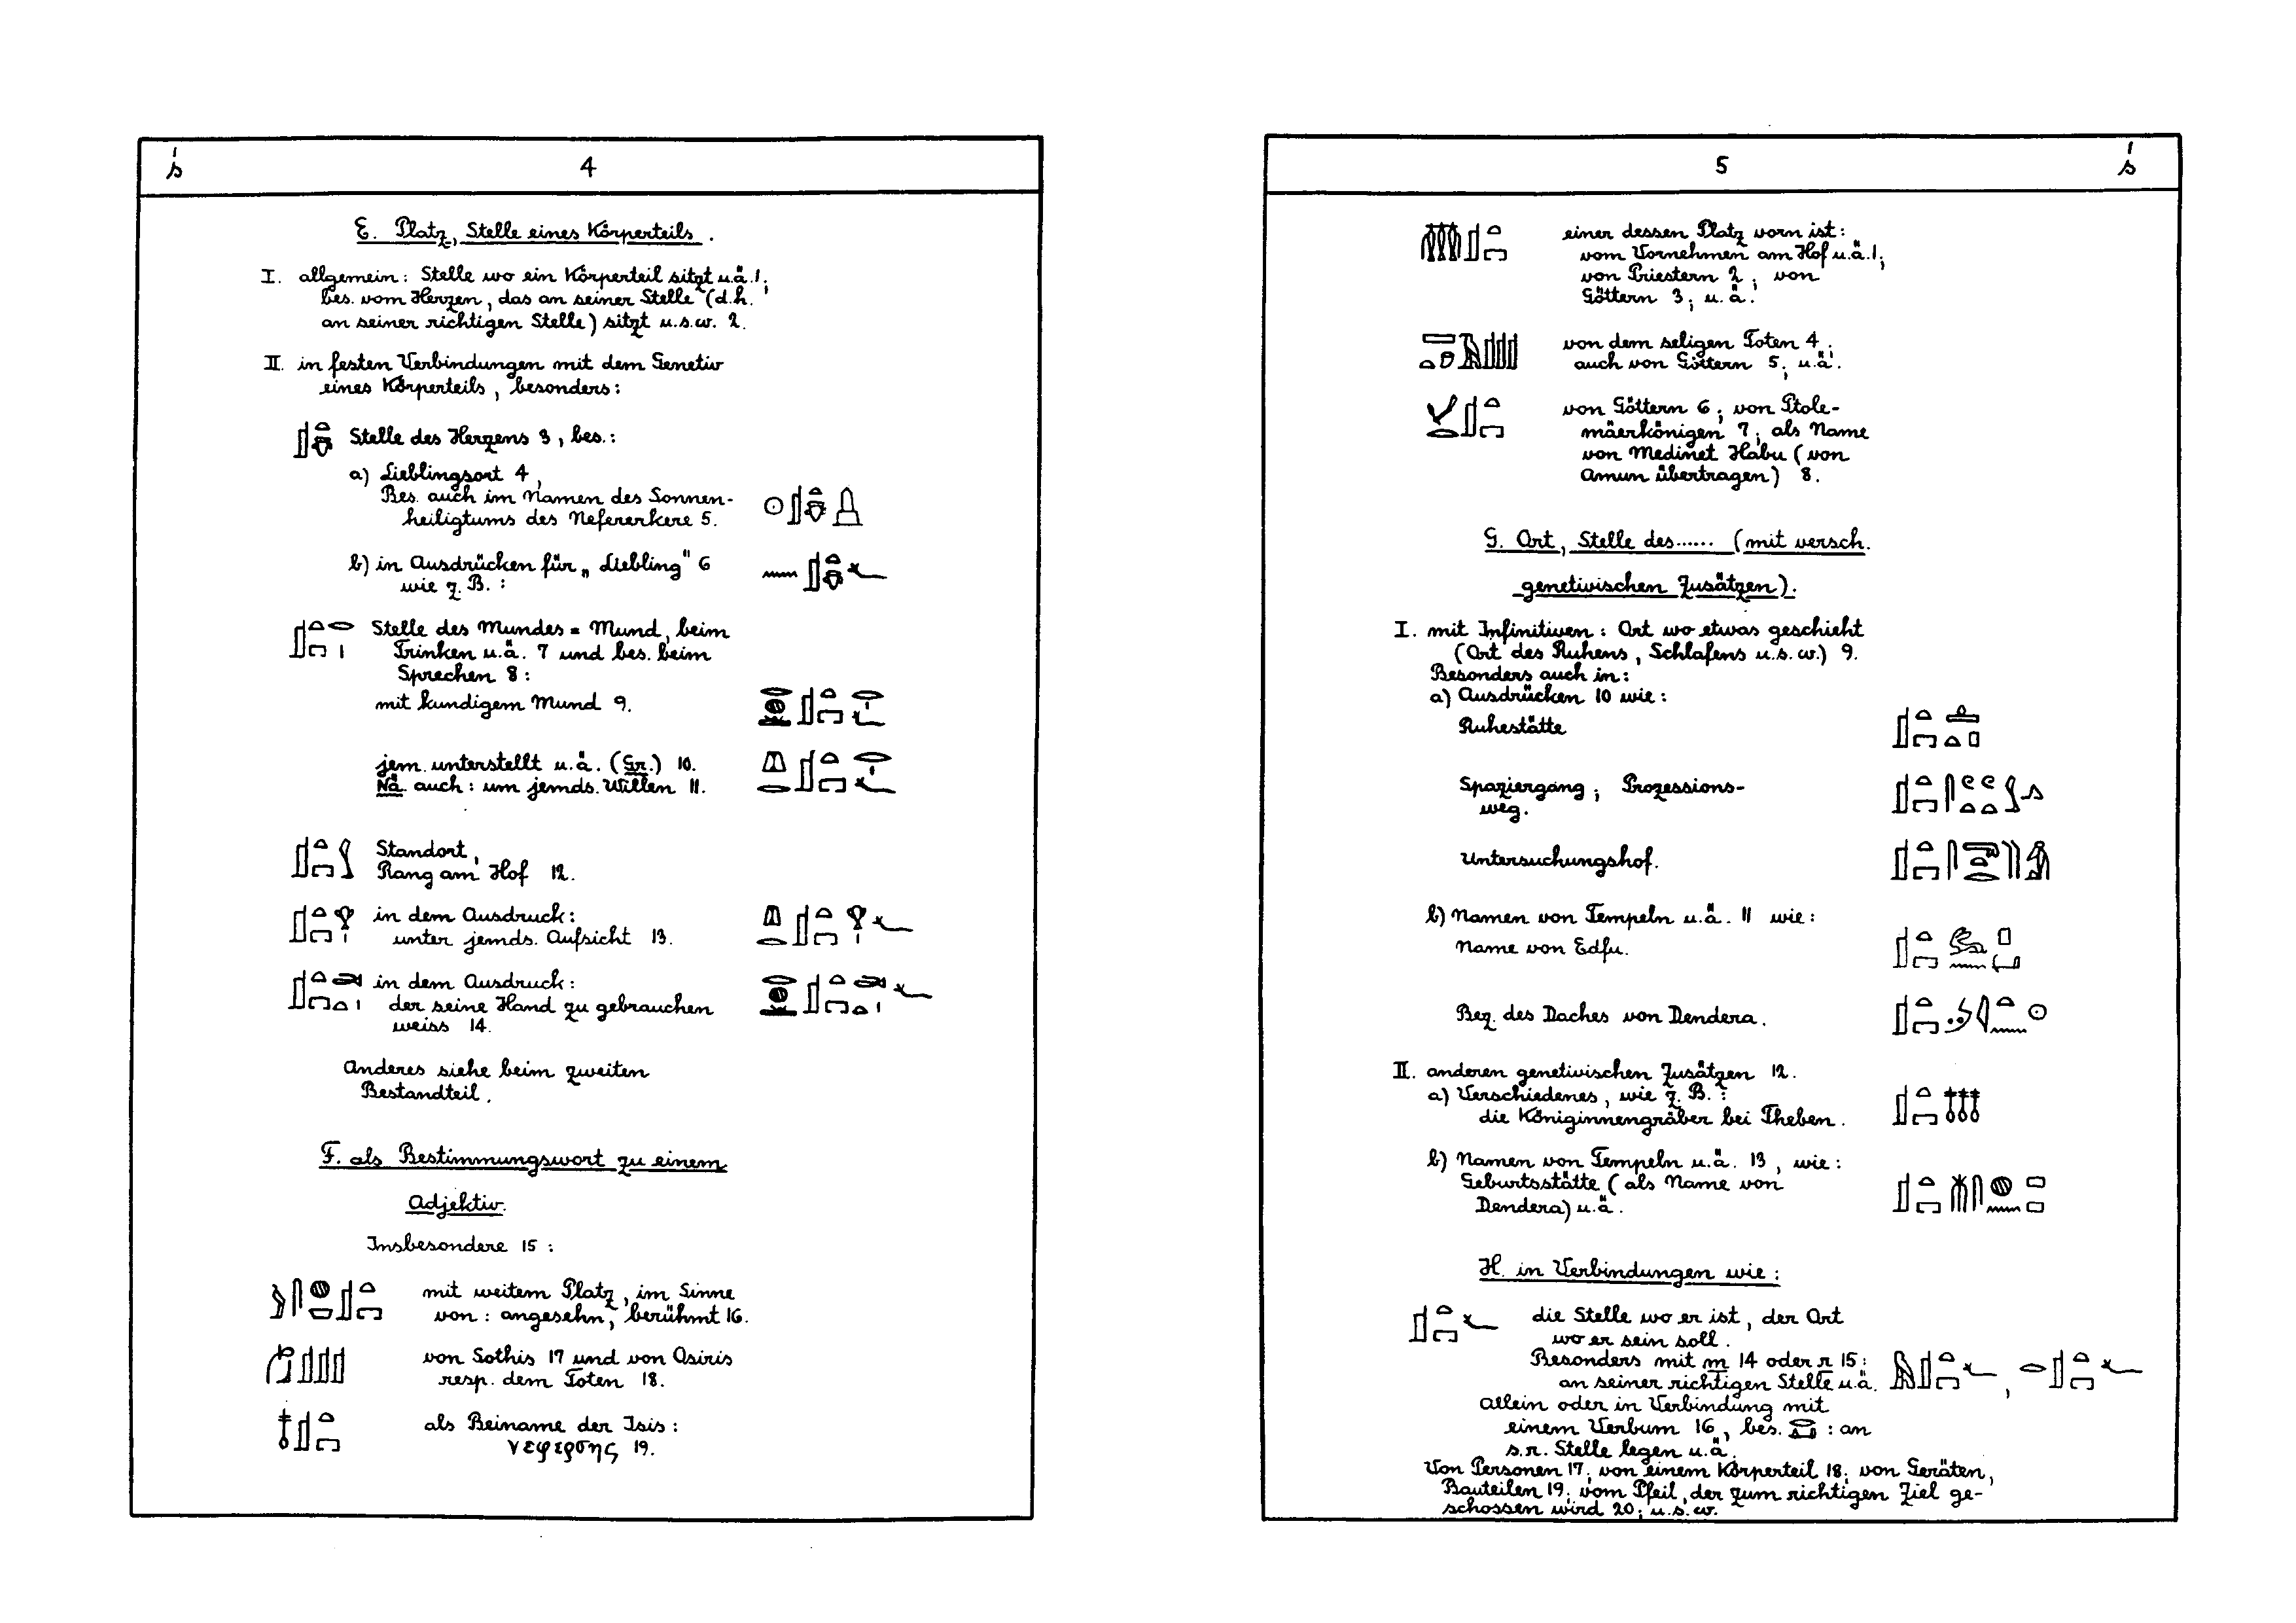 ś 4
E. Platz, Stelle eines Körperteils.
I. allgemein: Stelle wo ein Körperteil sitzt u.ä. 1;
bes. vom Herzen, das an seiner Stelle (d.h.
an seiner richtigen Stelle) sitzt u.s.w. 2.
II. in festen Verbindungen mit dem Genetiv
eines Körperteils, besonders:
Stelle des Herzens 3, bes.:
a) Lieblingsort 4,
Bes. auch im Namen des Sonnen-
heiligtums des Nefererkere 5.
b) in Ausdrücken für „Liebling" 6
wie z.B.:
Stelle des Mundes = Mund, beim
Trinken u.ä. 7 und bes. beim
Sprechen 8:
mit kundigem Mund 9.
jem. unterstellt u.ä. (Gr.) 10.
Nä. auch: um jemds. Willen 11.
Standort,
Rang am Hof 12.
in dem Ausdruck:
unter jemds. Aufsicht 13.
in dem Ausdruck:
der seine Hand zu gebrauchen
weiss 14.
Anderes siehe beim zweiten
Bestandteil.
F. als Bestimmungswort zu einem
Adjektiv.
Insbesondere 15:
mit weitem Platz, im Sinne
von: angesehn, berühmt 16.
von Sothis 17 und von Osiris
resp. dem Toten 18.
als Beiname der Isis:
νεφερσης 19.
5 ś
einer dessen Platz vorn ist:
vom Vornehmen am Hof u.ä. 1;
von Priestern 2; von
Göttern 3; u.ä.
von dem seligen Toten 4;
auch von Göttern 5; u.ä.
von Göttern 6; von Ptole-
mäerkönigen 7; als Name
von Medinet Habu (von
Amun übertragen) 8.
G. Ort, Stelle des...... (mit versch.
genetivischen Zusätzen).
I. mit Infinitiven: Ort wo etwas geschieht
(Ort des Ruhens, Schlafens u.s.w.) 9.
Besonders auch in:
a) Ausdrücken 10 wie:
Ruhestätte
Spaziergang; Prozessions-
weg.
Untersuchungshof.
b) Namen von Tempeln u.ä. 11 wie:
Name von Edfu.
Bez. des Daches von Dendera.
II. anderen genetivischen Zusätzen 12.
a) Verschiedenes, wie z.B.:
die Königinnengräber bei Theben.
b) Namen von Tempeln u.ä. 13, wie:
Geburtsstätte (als Name von
Dendera) u.ä.
H. in Verbindungen wie:
die Stelle wo er ist, der Ort
wo er sein soll.
Besonders mit m 14 oder r 15:
an seiner richtigen Stelle u.ä.
allein oder in Verbindung mit
einem Verbum 16, bes. : an
s.r. Stelle legen u.ä.
Von Personen 17; von einem Körperteil 18; von Geräten,
Bauteilen 19; vom Pfeil, der zum richtigen Ziel ge-
schossen wird 20; u.s.w.